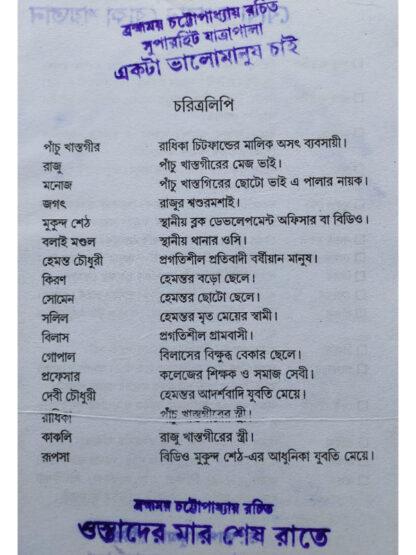 ব্রহ্মময় চট্টোপাধ্যায় রচিত
সুপারহিট যাত্রাপালা
একটা ভালোমানুষ চাই
চরিত্রলিপি
পাঁচু খাস্তগীর রাধিকা চিটফান্ডের মালিক অসৎ ব্যবসায়ী।
রাজু পাঁচু খাস্তগীরের মেজ ভাই।
মনোজ পাঁচু খাস্তগিরের ছোটো ভাই এ পালার নায়ক।
জগৎ রাজুর শ্বশুরমশাই।
মুকুন্দ শেঠ স্থানীয় ব্লক ডেভলেপমেন্ট অফিসার বা বিডিও।
বলাই মণ্ডল স্থানীয় থানার ওসি।
হেমন্ত চৌধুরী প্রগতিশীল প্রতিবাদী বর্ষীয়ান মানুষ।
কিরণ হেমন্তর বড়ো ছেলে।
সোমেন হেমন্তর ছোটো ছেলে।
সলিল হেমন্তর মৃত মেয়ের স্বামী।
বিলাস প্রগতিশীল গ্রামবাসী।
গোপাল বিলাসের বিক্ষুব্ধ বেকার ছেলে।
প্রফেসার কলেজের শিক্ষক ও সমাজ সেবী।
দেবী চৌধুরী হেমন্তর আদর্শবাদি যুবতি মেয়ে।
রাধিকা পাঁচু খাস্তগীরের স্ত্রী।
কাকলি রাজু খাস্তগীরের স্ত্রী।
রূপসা বিডিও মুকুন্দ শেঠ-এর আধুনিকা যুবতি মেয়ে।
ব্রহ্মময় চট্টোপাধ্যায় রচিত
ওস্তাদের মার শেষ রাতে